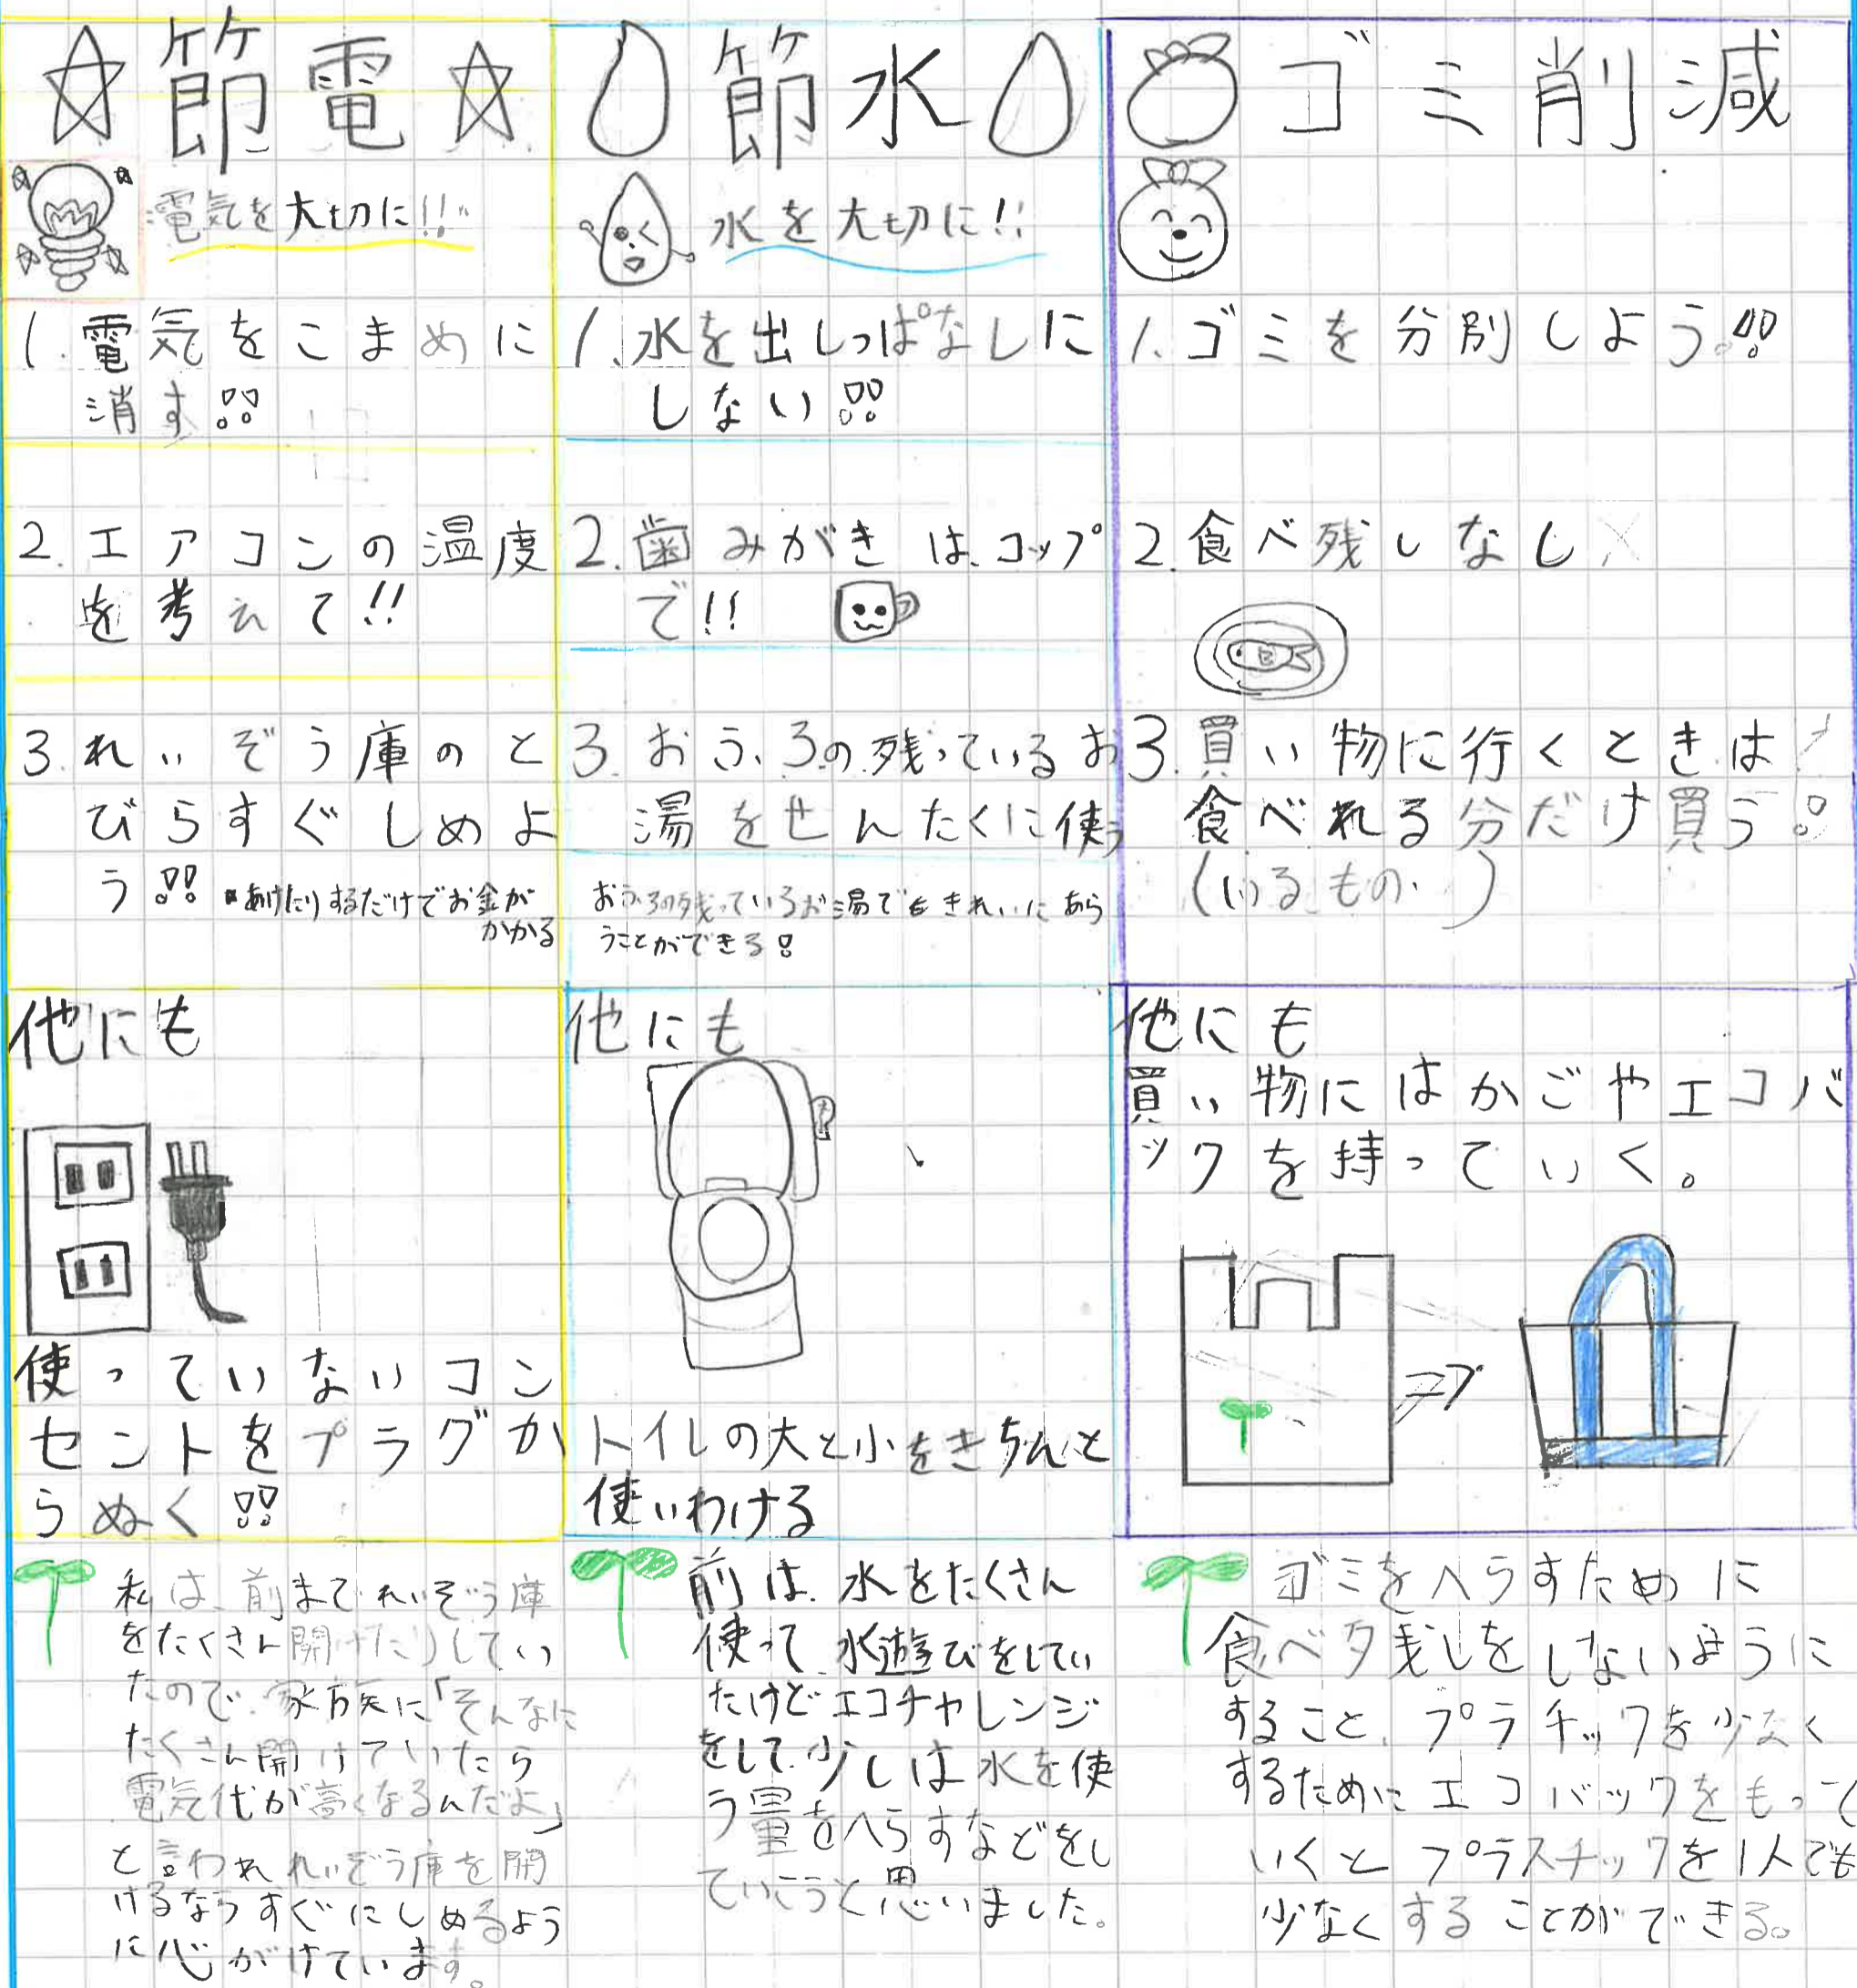 ☆節電☆
電気を大切に!!
1.電気をこまめに
消す!!
2.エアコンの温度
を考えて!!
3.れいぞう庫のと
びらすぐしめよ
う!!
あけたりするだけでお金が
かかる
他にも
使っていないコン
セントをプラグか
らぬく!!
私は、前までれいぞう庫
をたくさん開けたりしてい
たので、家族に「そんなに
たくさん開けていたら
電気代が高くなるんだよ」
と言われれいぞう庫を開
けるならすぐにしめるよう
に心がけています。
節水
水を大切に!!
1.水を出しっぱなしに
しない!!
2.歯みがきは、コップ
で!!
3.おふろの残っているお
湯をせんたくに使う
おふろの残っているお湯でもきれいにあら
うことができる!
他にも
トイレの大と小をきちんと
使いわける
前は、水をたくさん
使って、水遊びをしてい
たけどエコチャレンジ
をして、少しは水を使
う量をへらすなどをし
ていこうと思いました。
ゴミ削減
1.ゴミを分別しよう!!
2.食べ残しなし
3.買い物に行くときは
食べれる分だけ買う!
(いるもの)
他にも
買い物にはかごやエコバ
ックを持っていく。
ゴミをへらすために
食べ残しをしないように
すること、プラチックを少なく
するためにエコバックをもって
いくとプラスチックを1人でも
少なくすることができる。